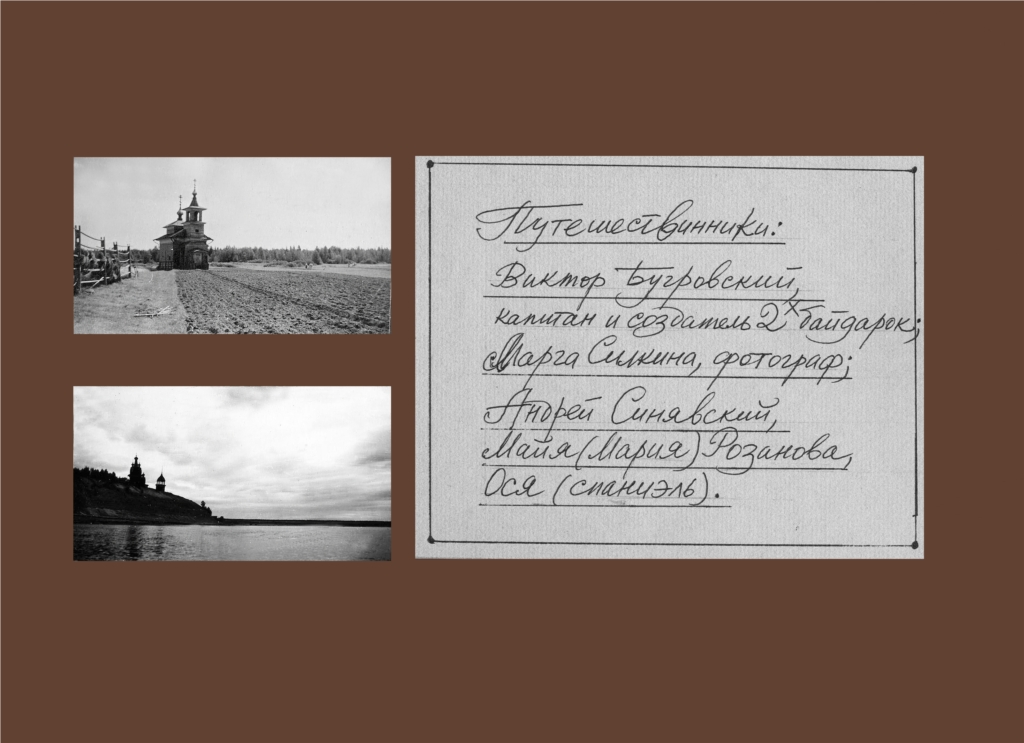 Путешествинники:
Виктор Бугровский,
капитан и создатель 2х байдарок;
Марга Силкина, фотограф;
Андрей Синявский,
Майя (Мария) Розанова,
Ося (спаниэль).